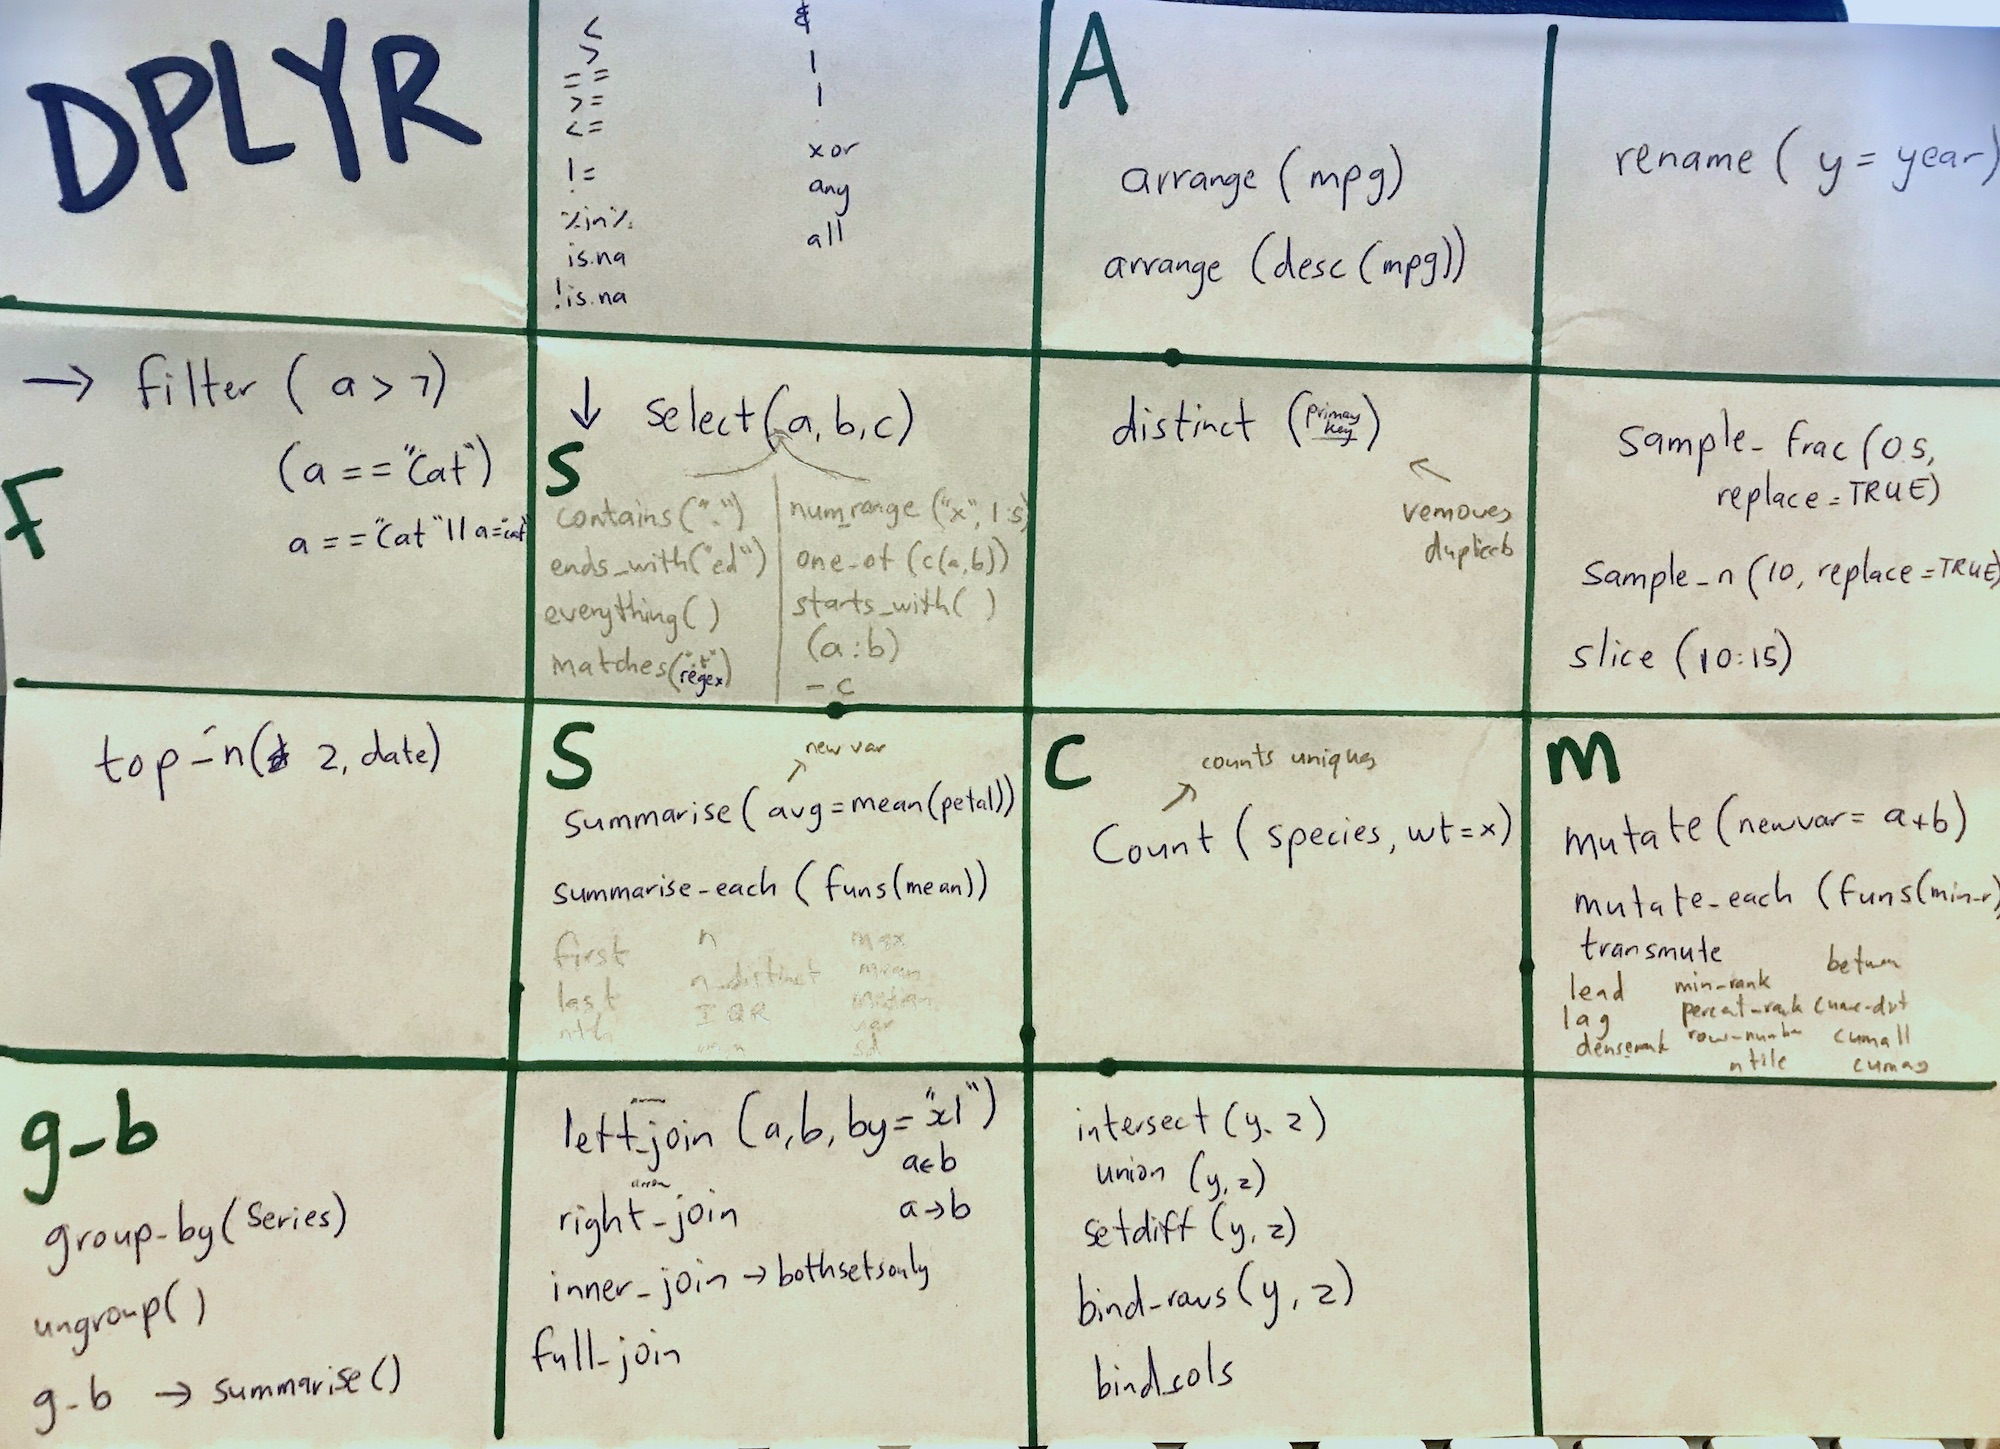 DPLYR
<
>
==
>=
<=
!=
%in%
is.na
!is.na
&
|
|
xor
any
all
A
arrange (mpg)
arrange (desc (mpg))
rename ( y = year)
→ filter ( a > 7)
(a == "Cat")
F
a == "Cat" || a="cat"
↓ select(a, b, c)
S
contains(".")
ends_with("ed")
everything( )
matches(".t."
regex)
num_range ("x", 1:5)
one_of (c(a,b))
starts_with( )
(a : b)
- c
distinct (primary key)
removes
sample_frac (0.5,
replace = TRUE)
sample_n (10, replace = TRUE)
slice (10:15)
top_n( 2, date)
S
new var
summarise ( avg = mean(petal))
summarise_each ( funs(mean))
first
last
nth
n
n_distinct
IQR
min
max
mean
median
var
sd
C
counts uniques
Count ( species, wt = x)
M
mutate (newvar = a+b)
mutate_each (funs(min_r)
transmute
lead
lag
min_rank
percent_rank
row_number
ntile
cumall
g_b
group_by( Series)
ungroup( )
g_b → summarise()
left_join (a, b, by = "x1")
a←b
right_join a→b
inner_join → both sets only
full_join
intersect (y, z)
union (y, z)
setdiff (y, z)
bind_rows (y, z)
bind_cols